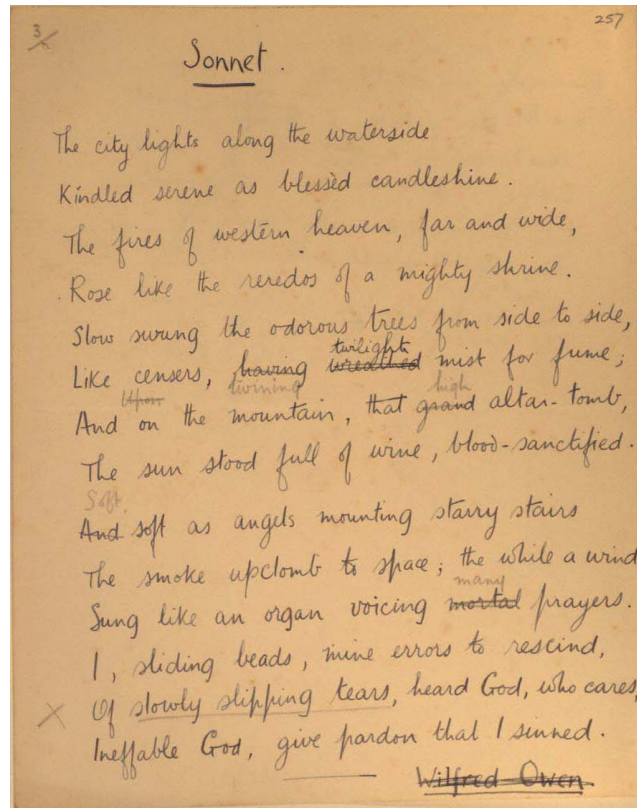 3
257
Sonnet.
The city lights along the waterside
Kindled serene as blessèd candleshine.
The fires of western heaven, far and wide,
Rose like the reredos of a mighty shrine.
Slow swung the odorous trees from side to side,
twilight
Like censers, having wreathed mist for fume;
Upon twining high
And on the mountain, that grand altar-tomb,
The sun stood full of wine, blood-sanctified.
Soft,
And soft as angels mounting starry stairs
The smoke upclomb to space; the while a wind
many
Sung like an organ voicing mortal prayers.
I, sliding beads, mine errors to rescind,
Of slowly slipping tears, heard God, who cares,
Ineffable God, give pardon that I sinned.
Wilfred Owen